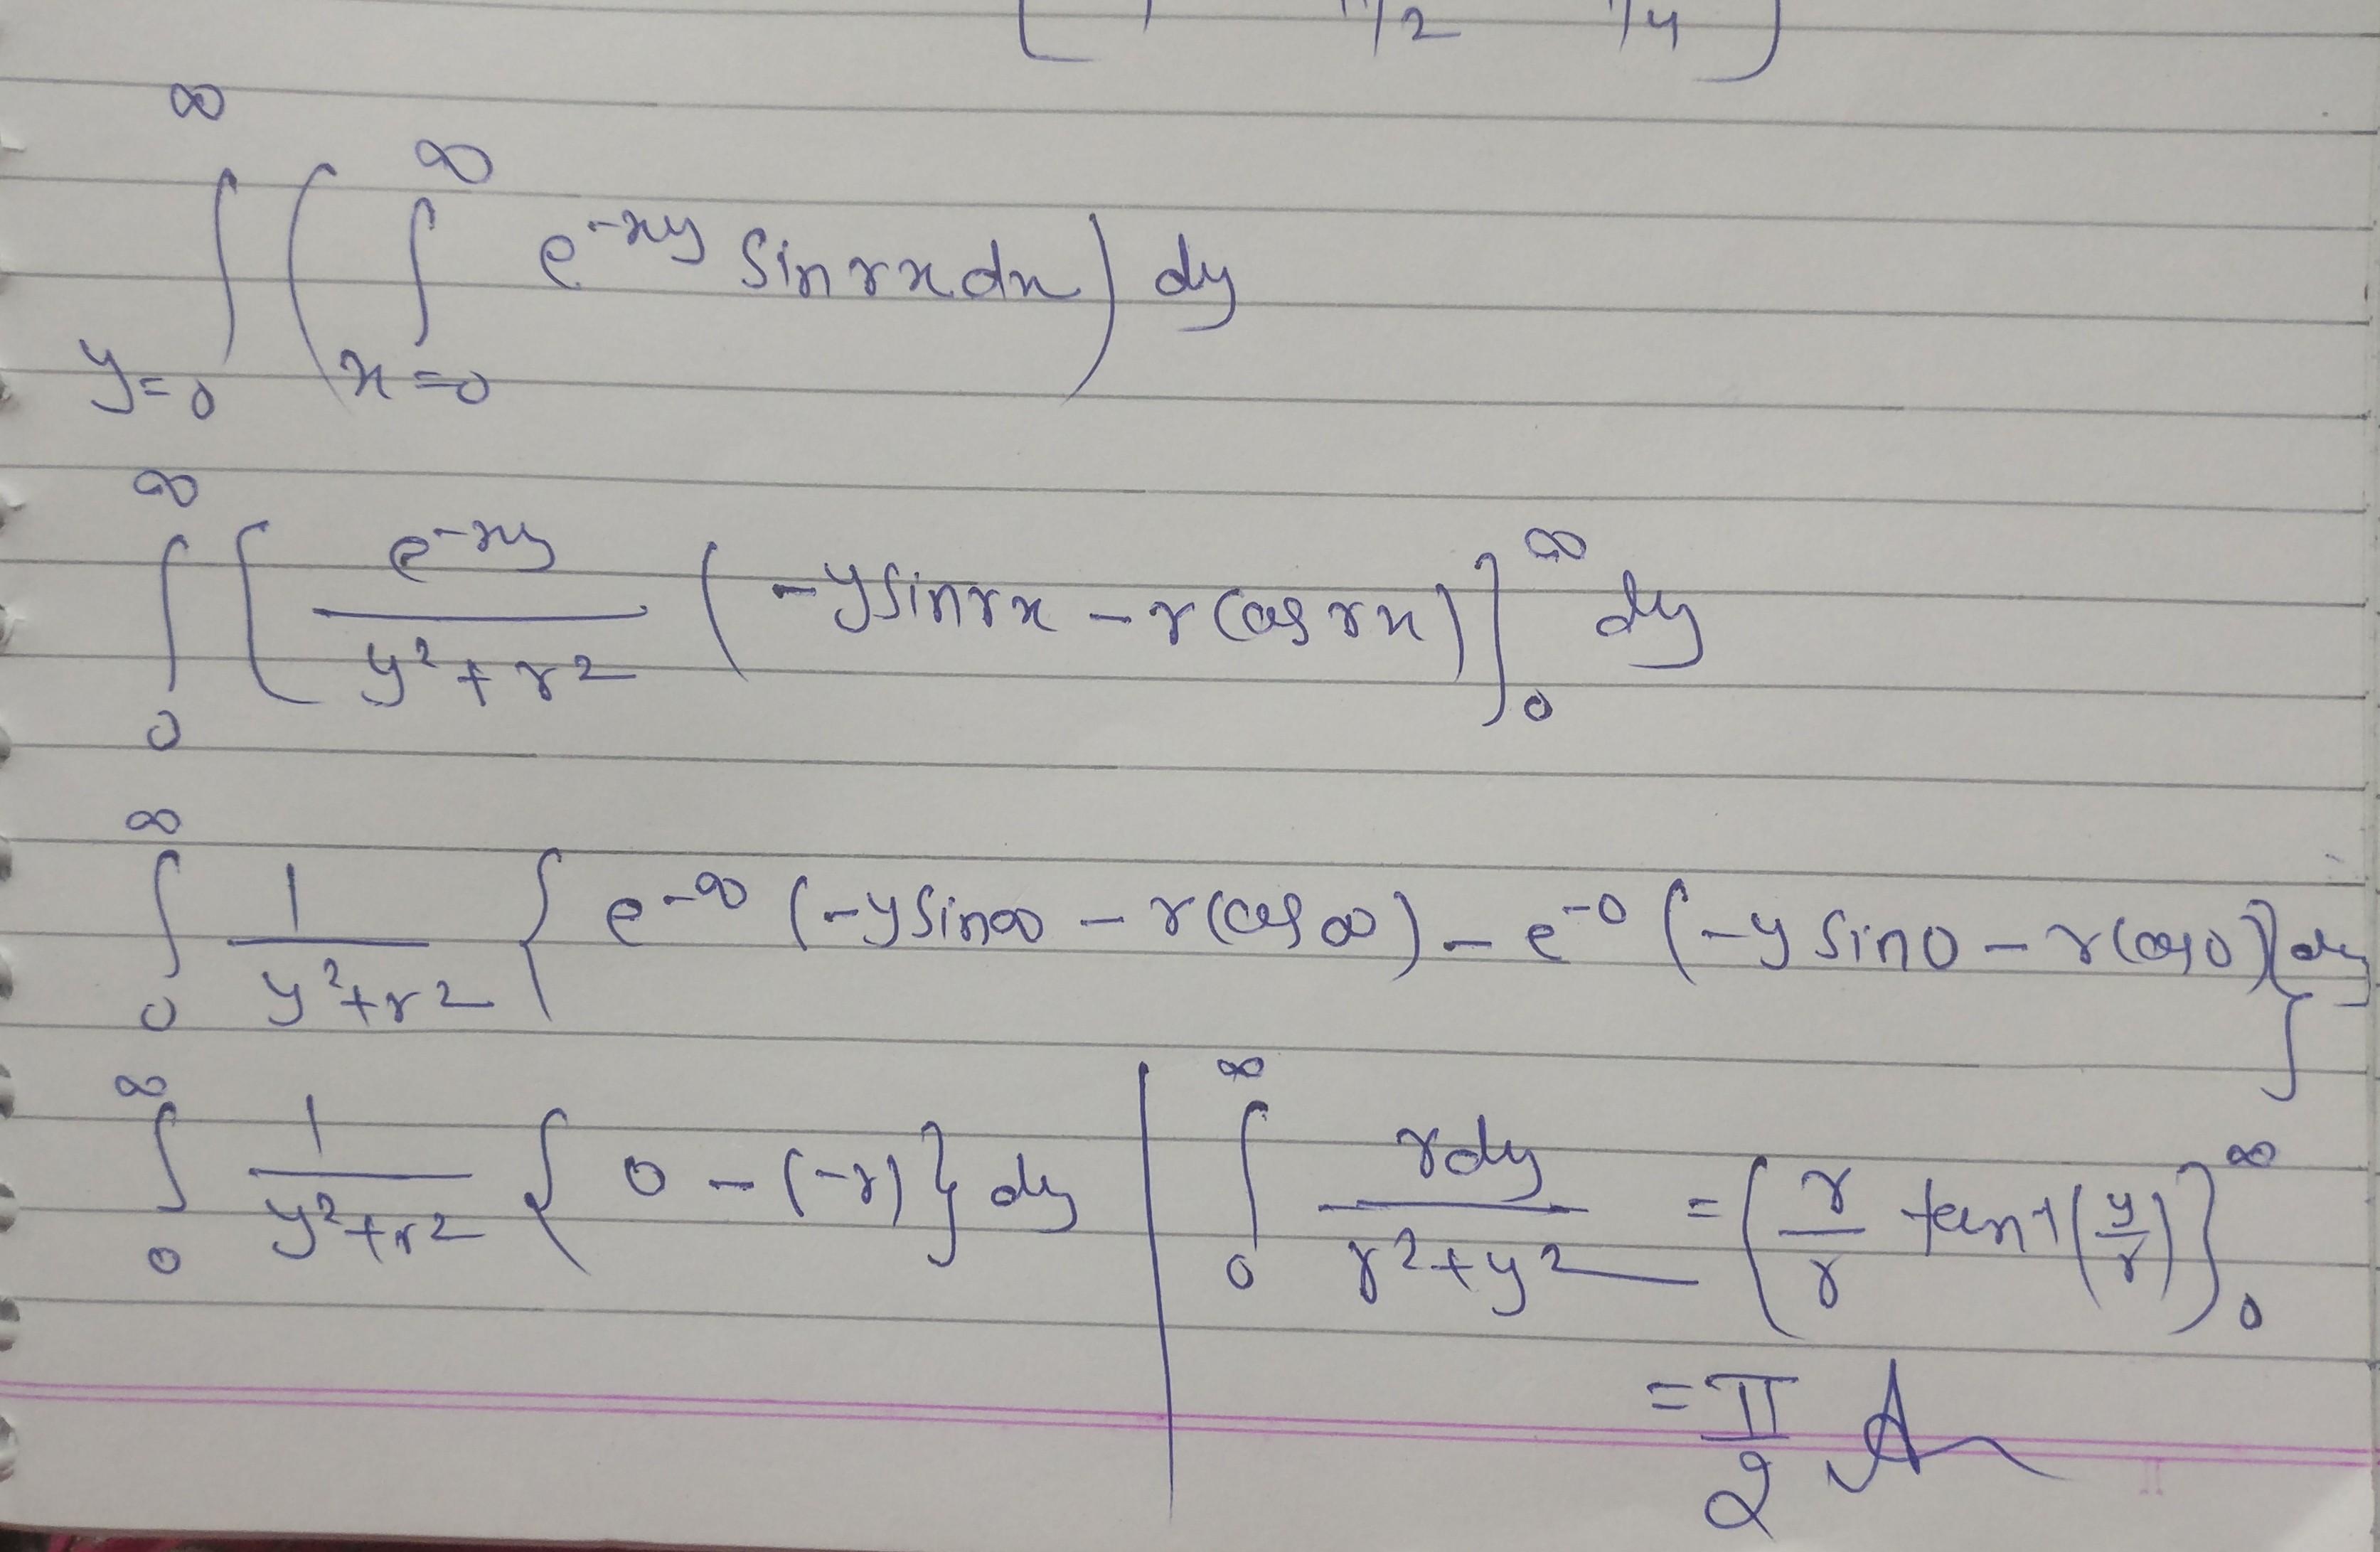 [ 1 1/2 1/4 ]
∫_{y=0}^{∞} ( ∫_{x=0}^{∞} e^{-xy} sin rx dx ) dy
∫_0^∞ [ e^{-xy} / (y²+r²) (-y sin rx - r cos rx) ]_0^∞ dy
∫_0^∞ 1/(y²+r²) { e^{-∞} (-y sin∞ - r cos∞) - e^{-0} (-y sin0 - r cos0) } dy
∫_0^∞ 1/(y²+r²) { 0 - (-r) } dy | ∫_0^∞ r dy/(r²+y²) = [ r/r tan⁻¹(y/r) ]_0^∞
= π/2 A